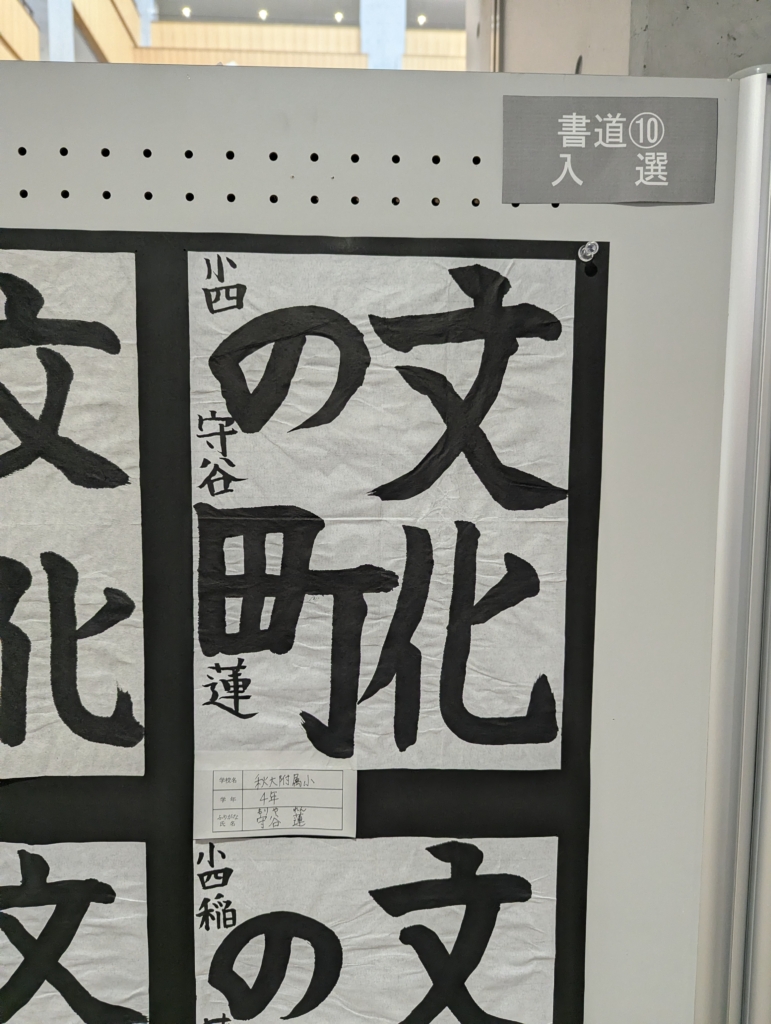 書道⑩
入選
文化
の町
小四 守谷 蓮
学校名 秋大附属小
学年 4年
ふりがな もりや れん
氏名 守谷 蓮
文化
文
の
小四 稲
文